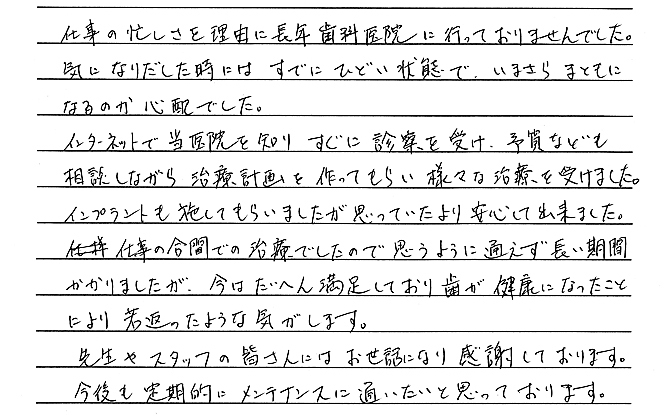 仕事の忙しさを理由に長年歯科医院に行っておりませんでした。
気になりだした時には すでに ひどい状態で、いまさら まともに
なるのか 心配でした。
インターネットで当医院を知り すぐに 診察を受け、予算なども
相談しながら 治療計画を 作ってもらい 様々な治療を受けました。
インプラントも施してもらいましたが思っていたより 安心して出来ました。
仕事の合間での治療でしたので 思うように通えず 長い期間
かかりましたが、今は たいへん満足しており 歯が 健康になったこと
により 若返ったような気がします。
先生や スタッフの皆さんには お世話になり 感謝しております。
今後も 定期的に メンテナンスに 通いたいと思っております。